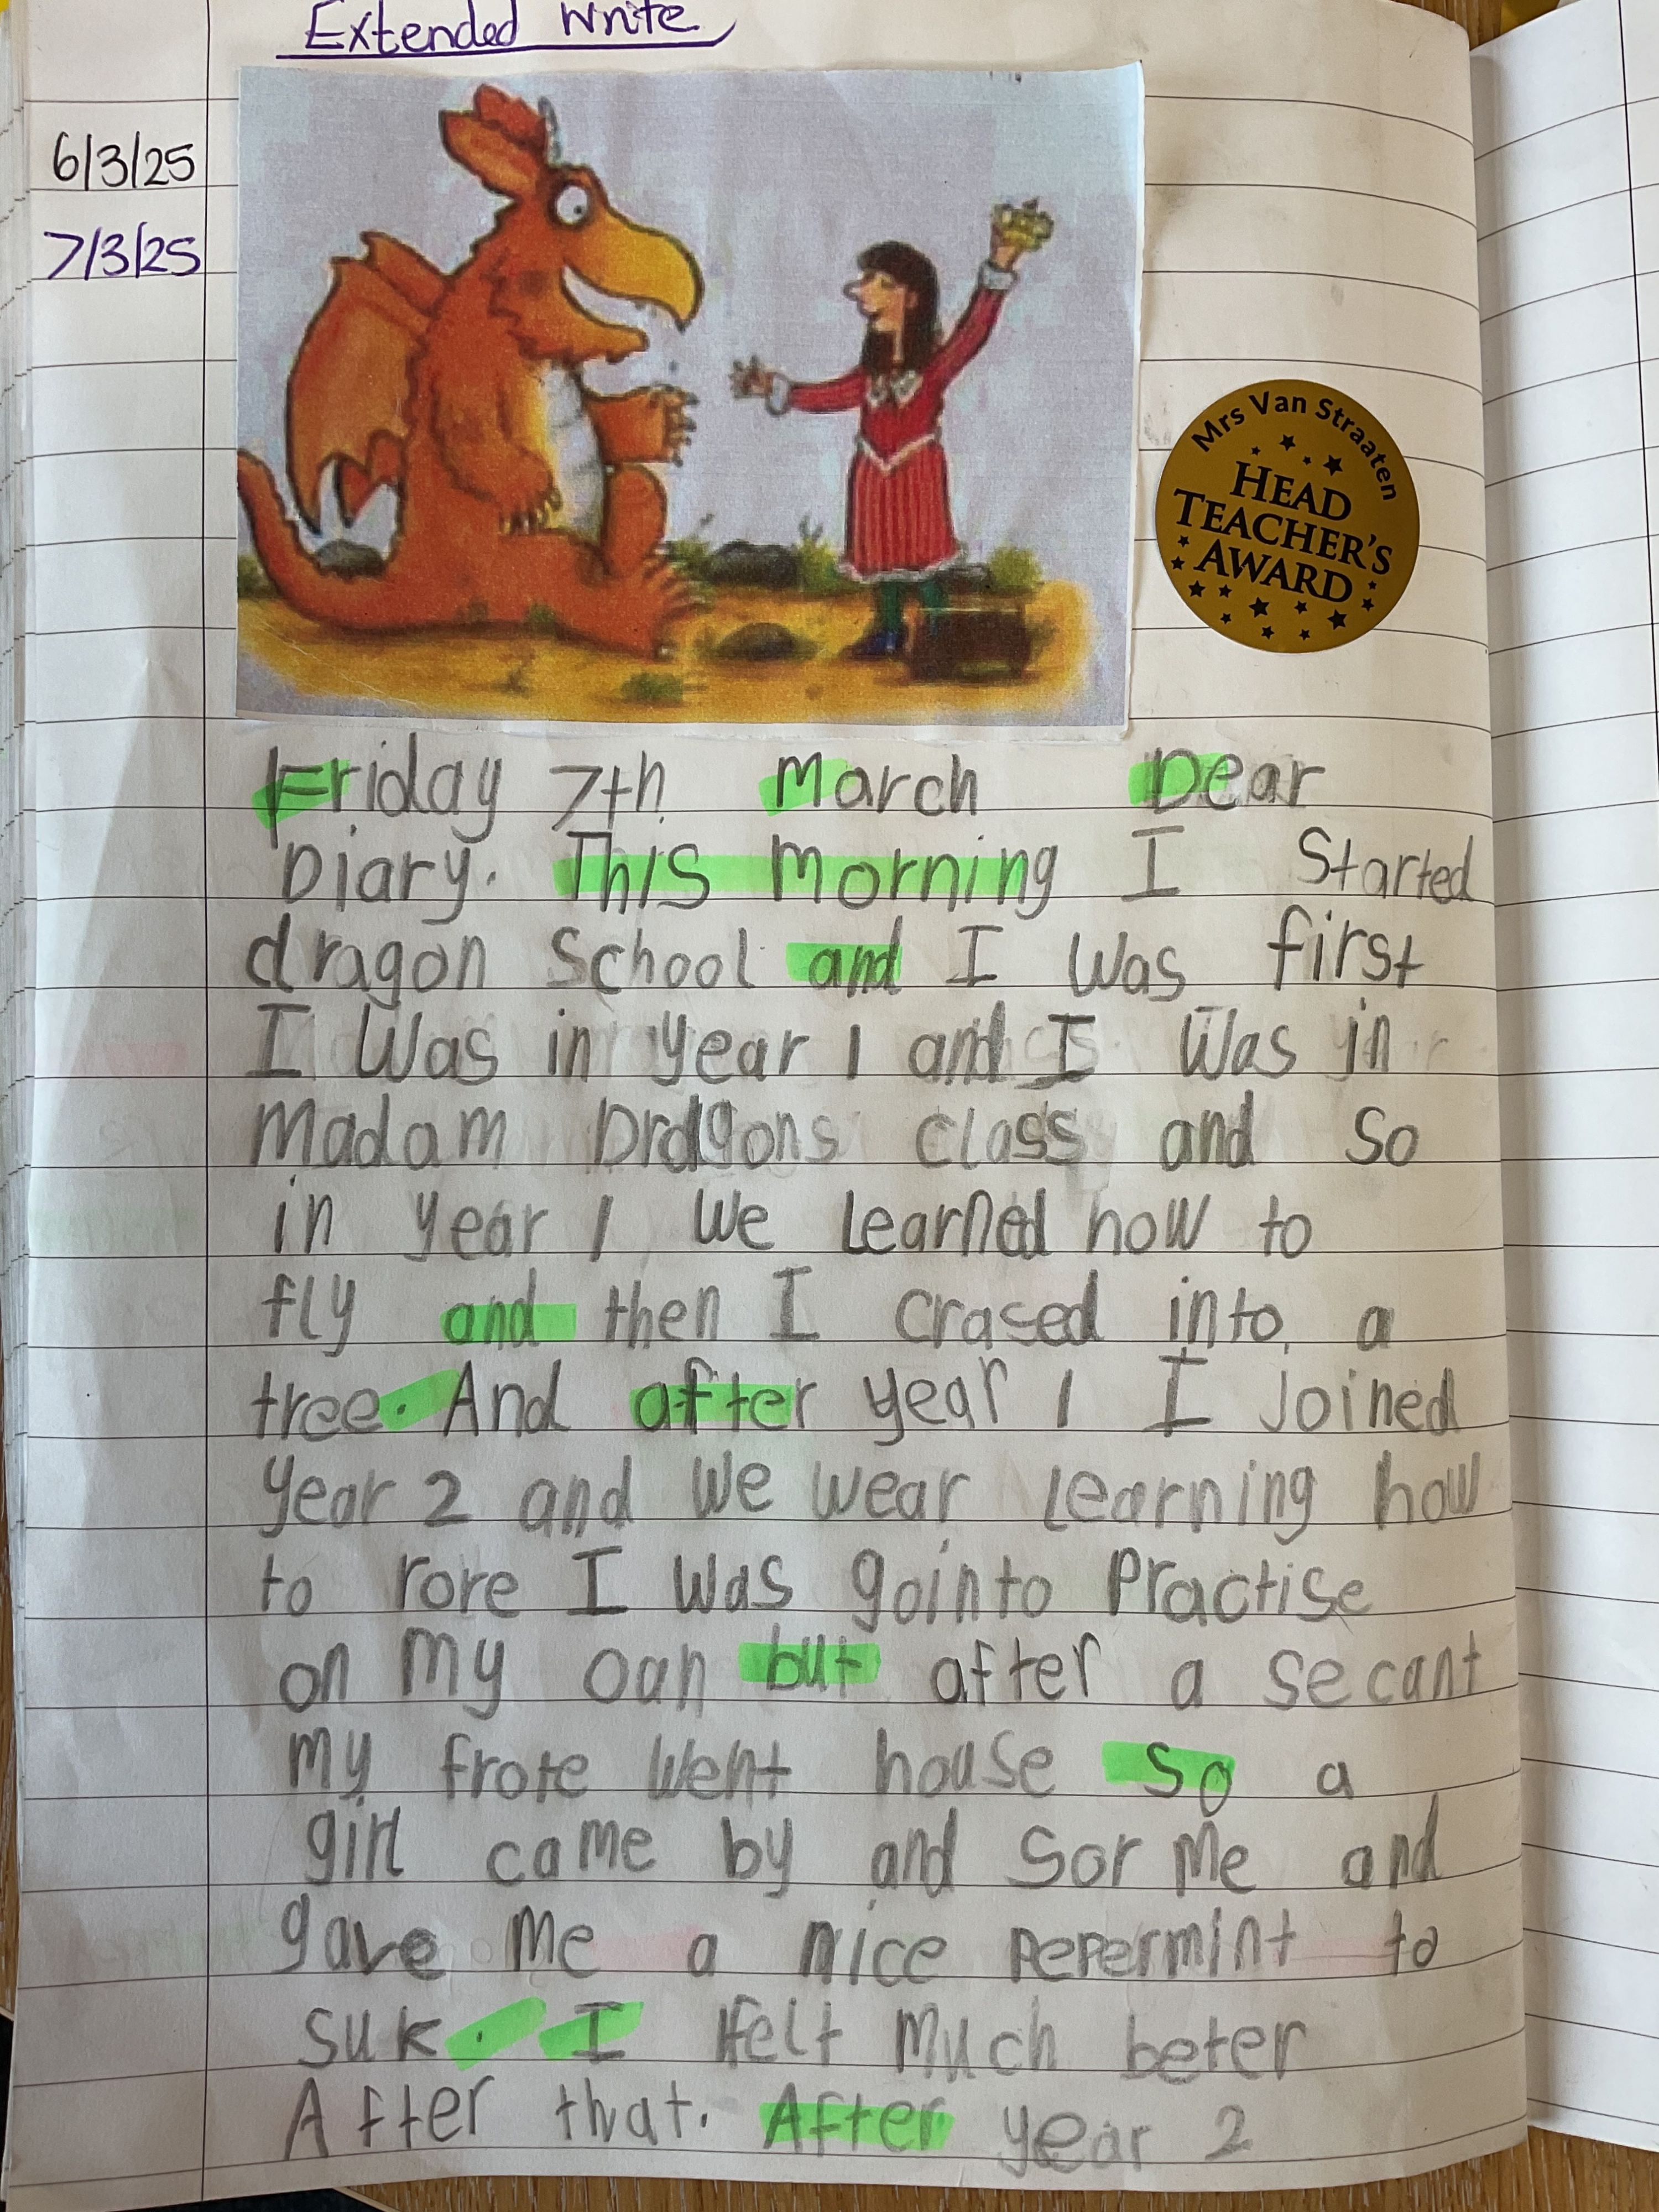 Extended Write
6/3/25
7/3/25
Mrs Van Straaten
HEAD
TEACHER'S
AWARD
Friday 7th March Dear
Diary. This morning I Started
dragon School and I was first
I was in year 1 and I was in
Madam Dragons class and so
in year 1 we learned how to
fly and then I crased into a
tree. And after year 1 I joined
year 2 and we wear learning how
to rore I was gointo Practise
on my oan but after a secant
my frote went house So a
girl came by and sor me and
gave me a nice pepermint to
suk. I felt much beter
After that. After year 2